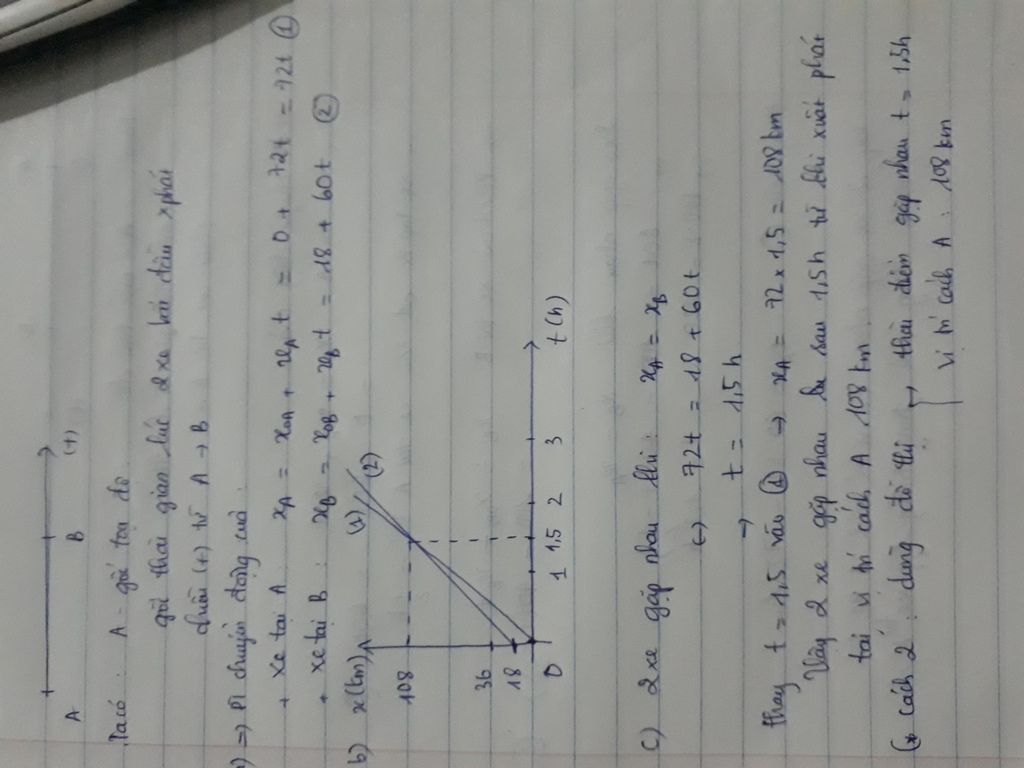 A B (+)
Ta có : A - gốc tọa độ
gốc thời gian lúc 2 xe bắt đầu xphát
chiều (+) từ A → B
) => Pt chuyển động của
+ xe tại A xA = x0A + vA t = 0 + 72t = 72t ①
+ xe tại B : xB = x0B + vB t = 18 + 60t ②
b) x(km)
(1) (2)
108
36
18
0 1 1.5 2 3 t(h)
c) 2 xe gặp nhau khi : xA = xB
(-) 72t = 18 + 60t
→ t = 1,5 h
thay t = 1,5 vào ① → xA = 72 x 1,5 = 108 km
Vậy 2 xe gặp nhau lúc sau 1,5h từ khi xuất phát
tại vị trí cách A 108 km
(* cách 2 : dùng đồ thị → thời điểm gặp nhau t = 1,5h
vị trí cách A : 108 km